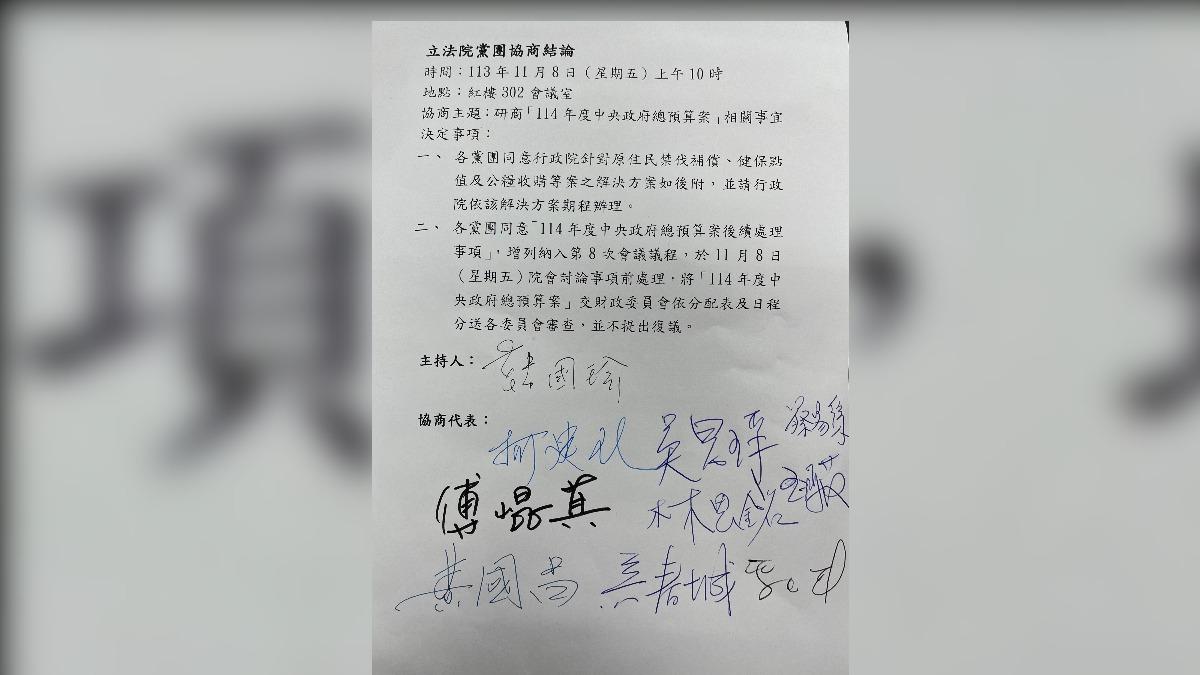 立法院黨團協商結論
時間：113年11月8日（星期五）上午10時
地點：紅樓302會議室
協商主題：研商「114年度中央政府總預算案」相關事宜
決定事項：
一、各黨團同意行政院針對原住民禁伐補償、健保點
值及公糧收購等案之解決方案如後附，並請行政
院依該解決方案期程辦理。
二、各黨團同意「114年度中央政府總預算案後續處理
事項」，增列納入第8次會議議程，於11月8日
（星期五）院會討論事項前處理，將「114年度中
央政府總預算案」交財政委員會依分配表及日程
分送各委員會審查，並不提出復議。
主持人：韓國瑜
協商代表：
柯建 吳思瑤
傅崐萁 林思銘
黃國昌 吳春城
項